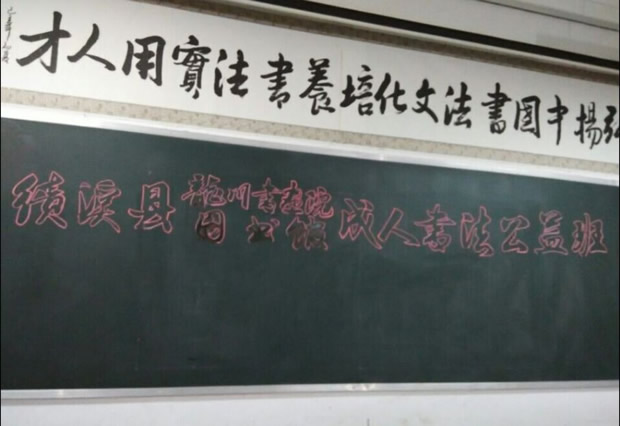 弘揚中國書法文化培養書法實用人才
績溪县
龍川書畫院
图书馆
成人書法公益班